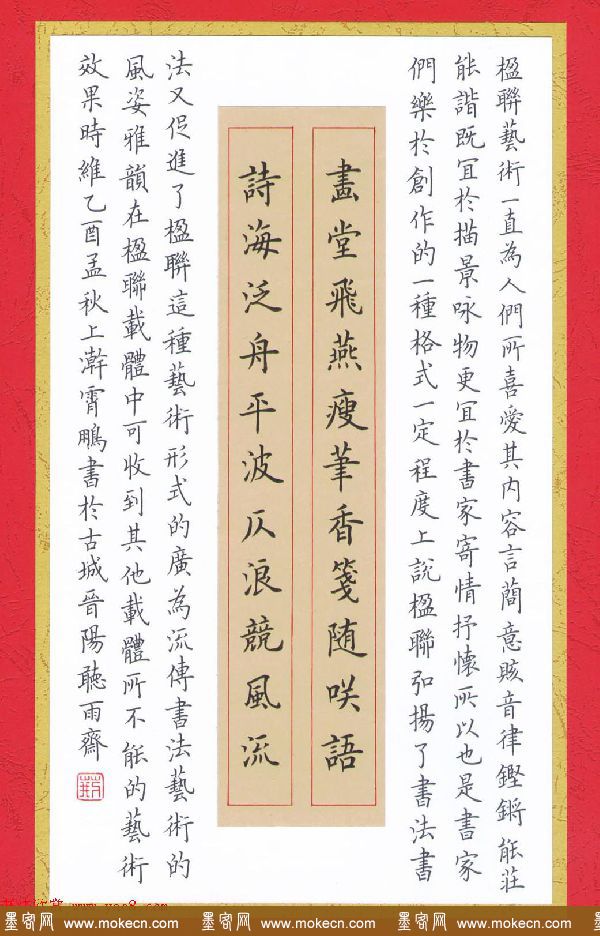 楹聯藝術一直為人們所喜愛其内容言蕳意賅音律鏗鏘能莊
能諧既宜於描景咏物更宜於書家寄情抒懷所以也是書家
們樂於創作的一種格式一定程度上說楹聯弘揚了書法書
畫堂飛燕瘦筆香箋随咲語
詩海泛舟平波仄浪競風流
法又促進了楹聯這種藝術形式的廣為流傳書法藝術的
風姿雅韻在楹聯載體中可收到其他載體所不能的藝術
效果時維乙酉孟秋上澣霄鵬書於古城晉陽聽雨齋
墨客网 www.mokecn.com 墨客网 www.mokecn.com 墨客网 www.mokecn.com